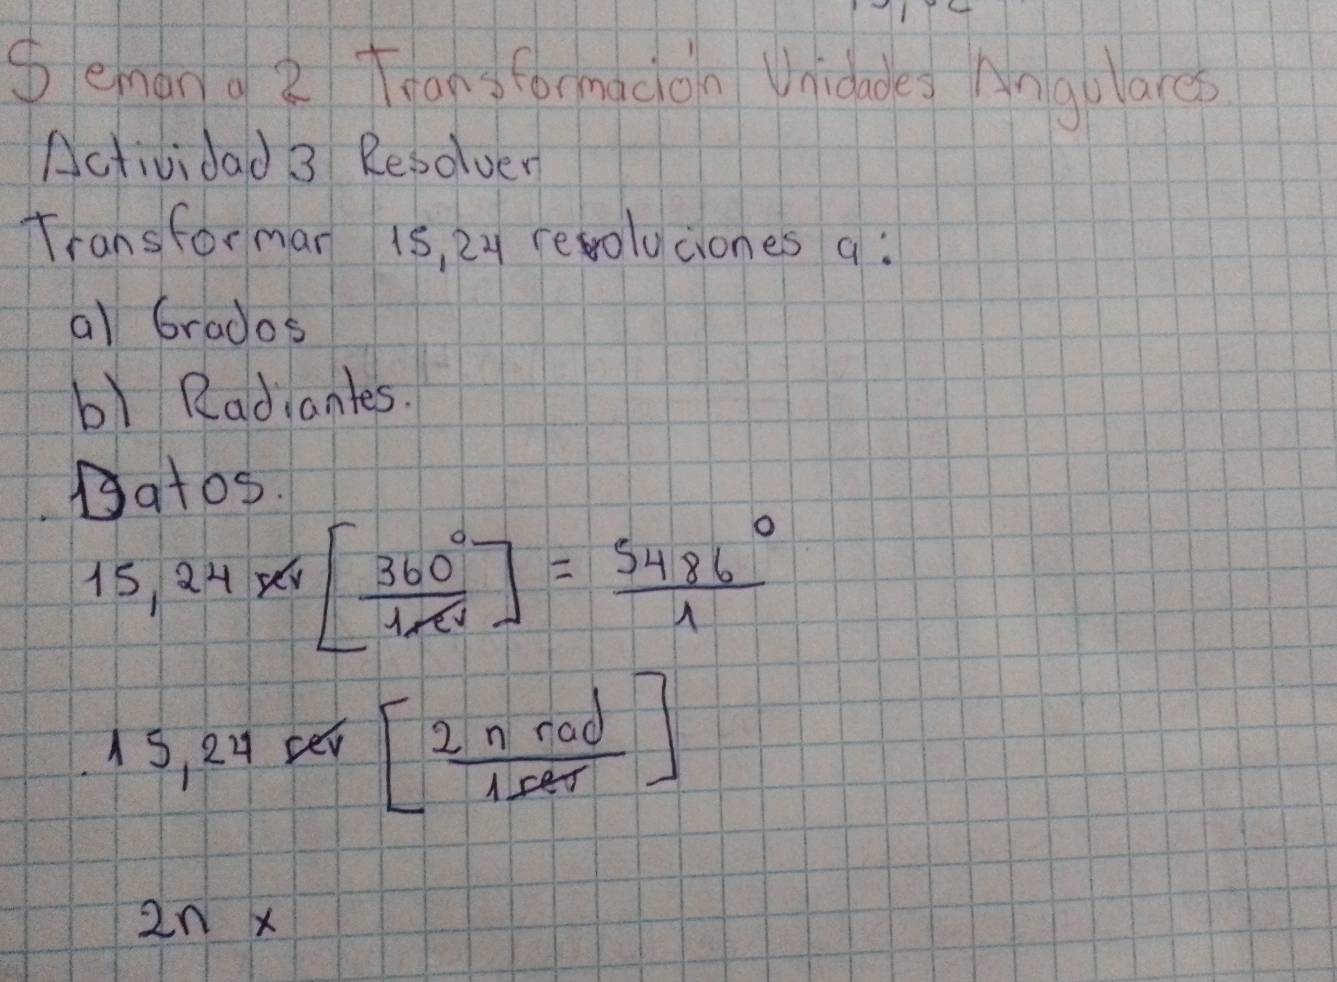 Semana 2 Transformación Unidades Angulares
Actividad 3 Resolver
Transformar 15,24 revoluciones a:
a) Grados
b) Radiantes.
Datos.
15,24 rev [360°/1rev] = 5486°/1
15,24 rev [2 n rad/1rev]
2n x